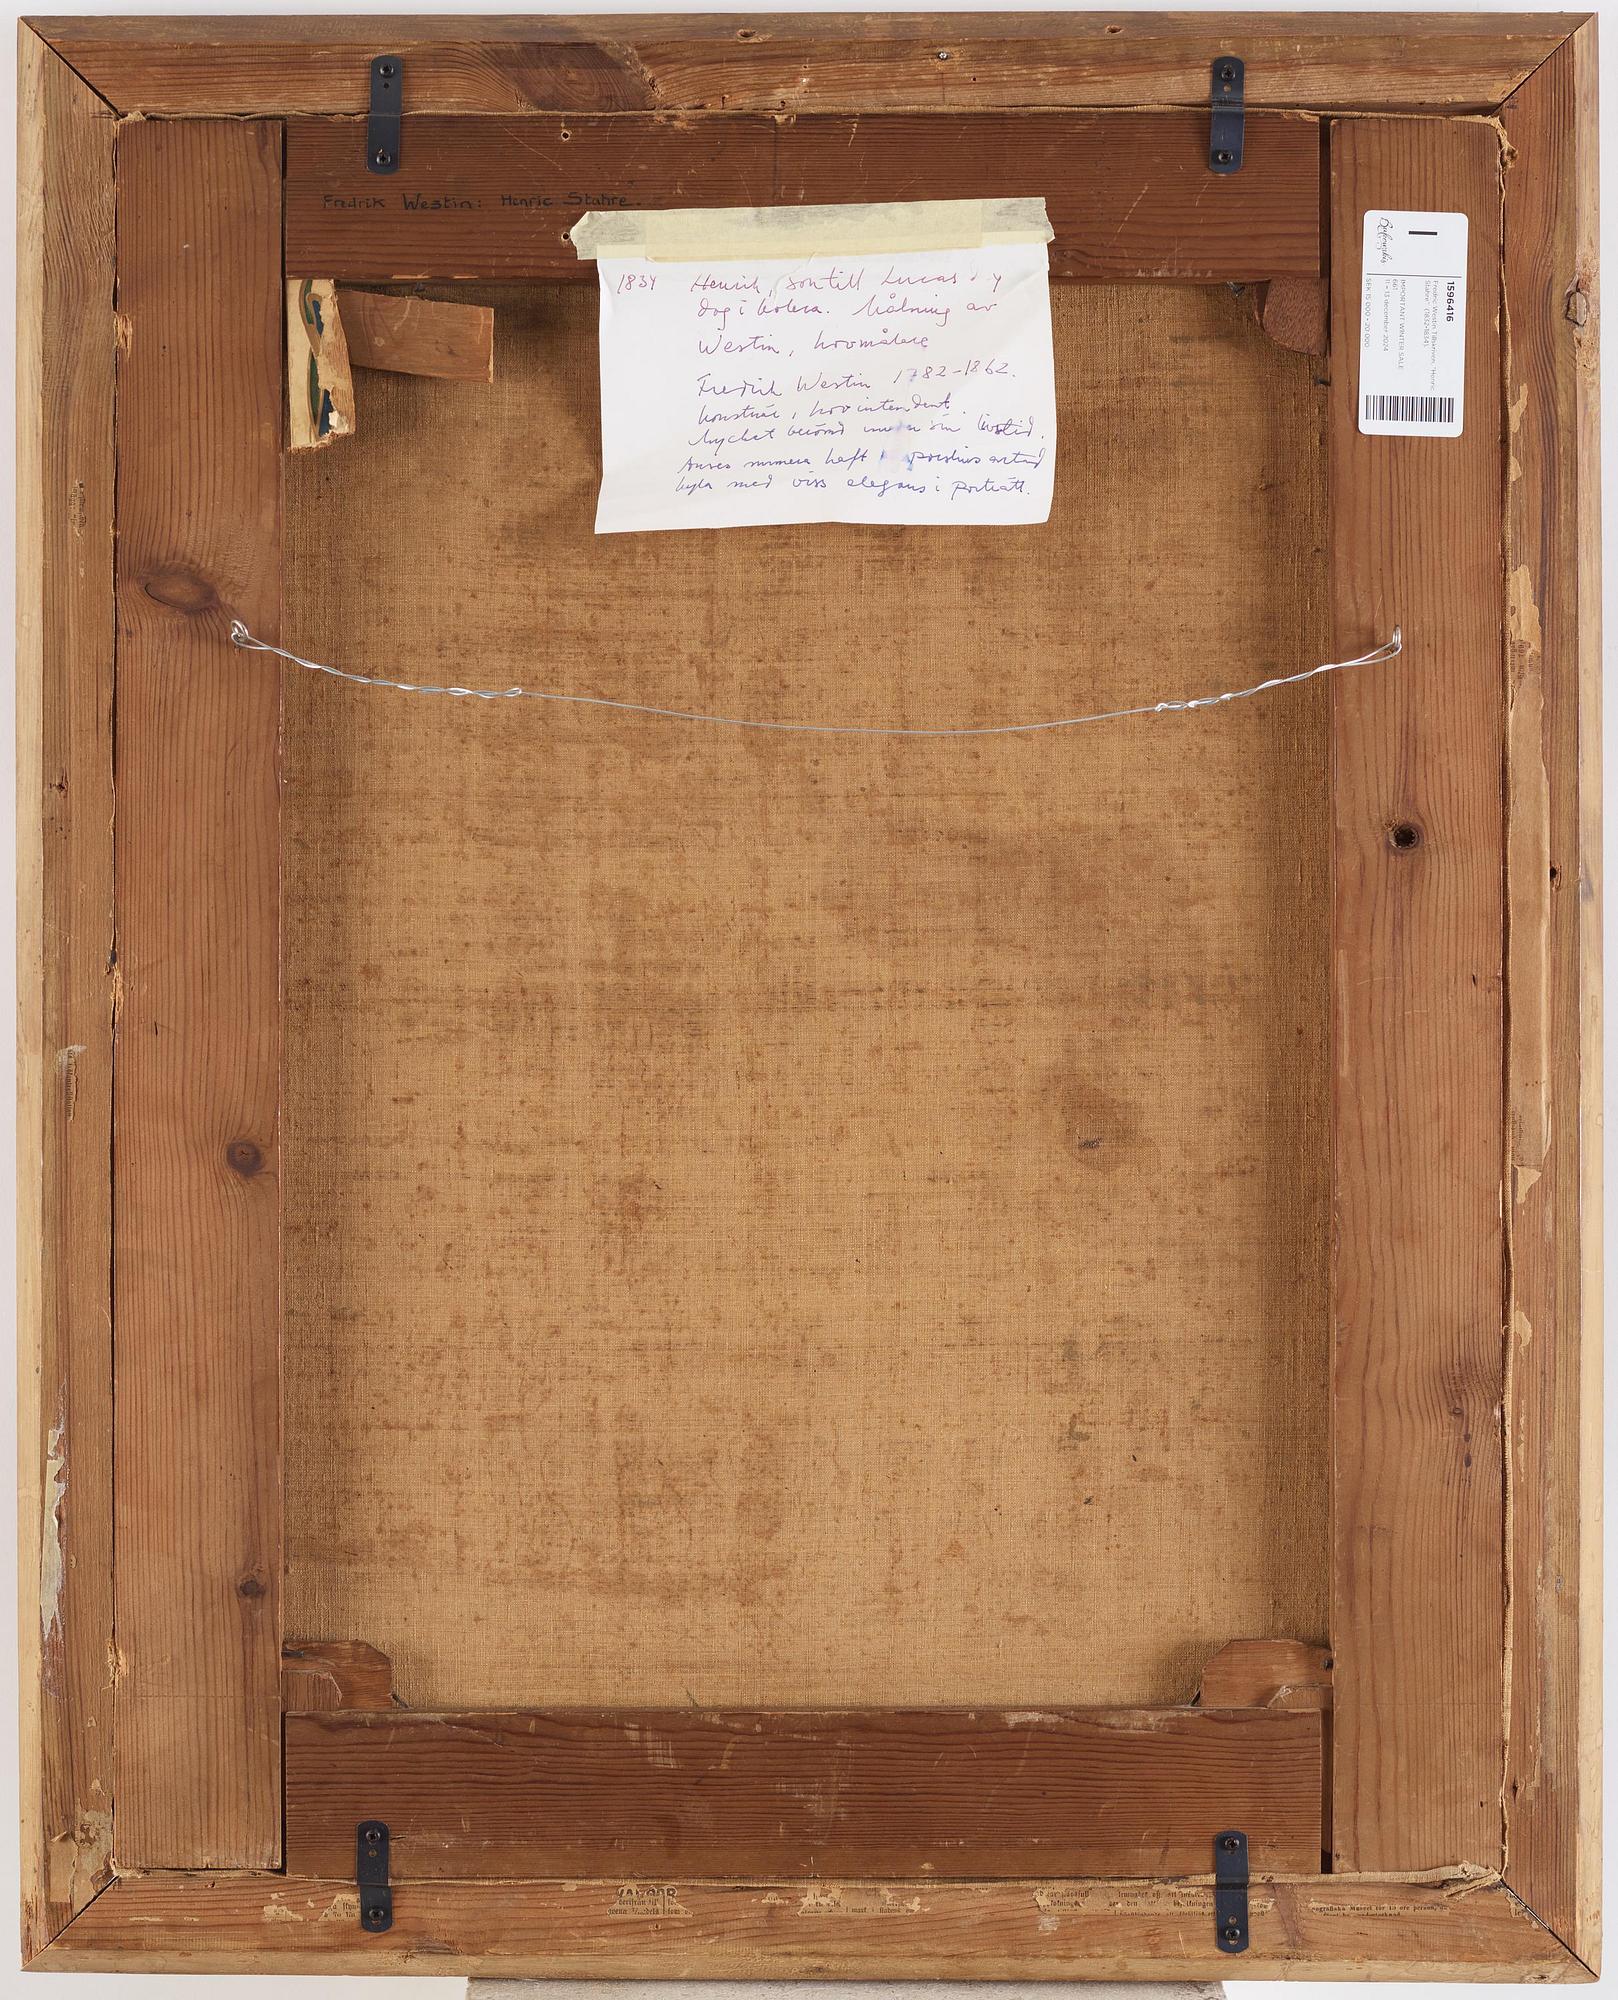 Fredrik Westin: Henric Stahre.
1834 Henrik, son till Lucas d y
dog i kolera. Målning av
Westin, hovmålare
Fredrik Westin 1782-1862.
konstnär, hovintendent.
Mycket berömd under sin livstid.
Anses numera haft
kyla med viss elegans i porträtt.
Bukowskis
1596416
Fredric Westin Tillskriven. "Henric
Stahre" (1832-1834).
IMPORTANT WINTER SALE
661
11 - 13 december 2024
SEK 15 000 - 20 000